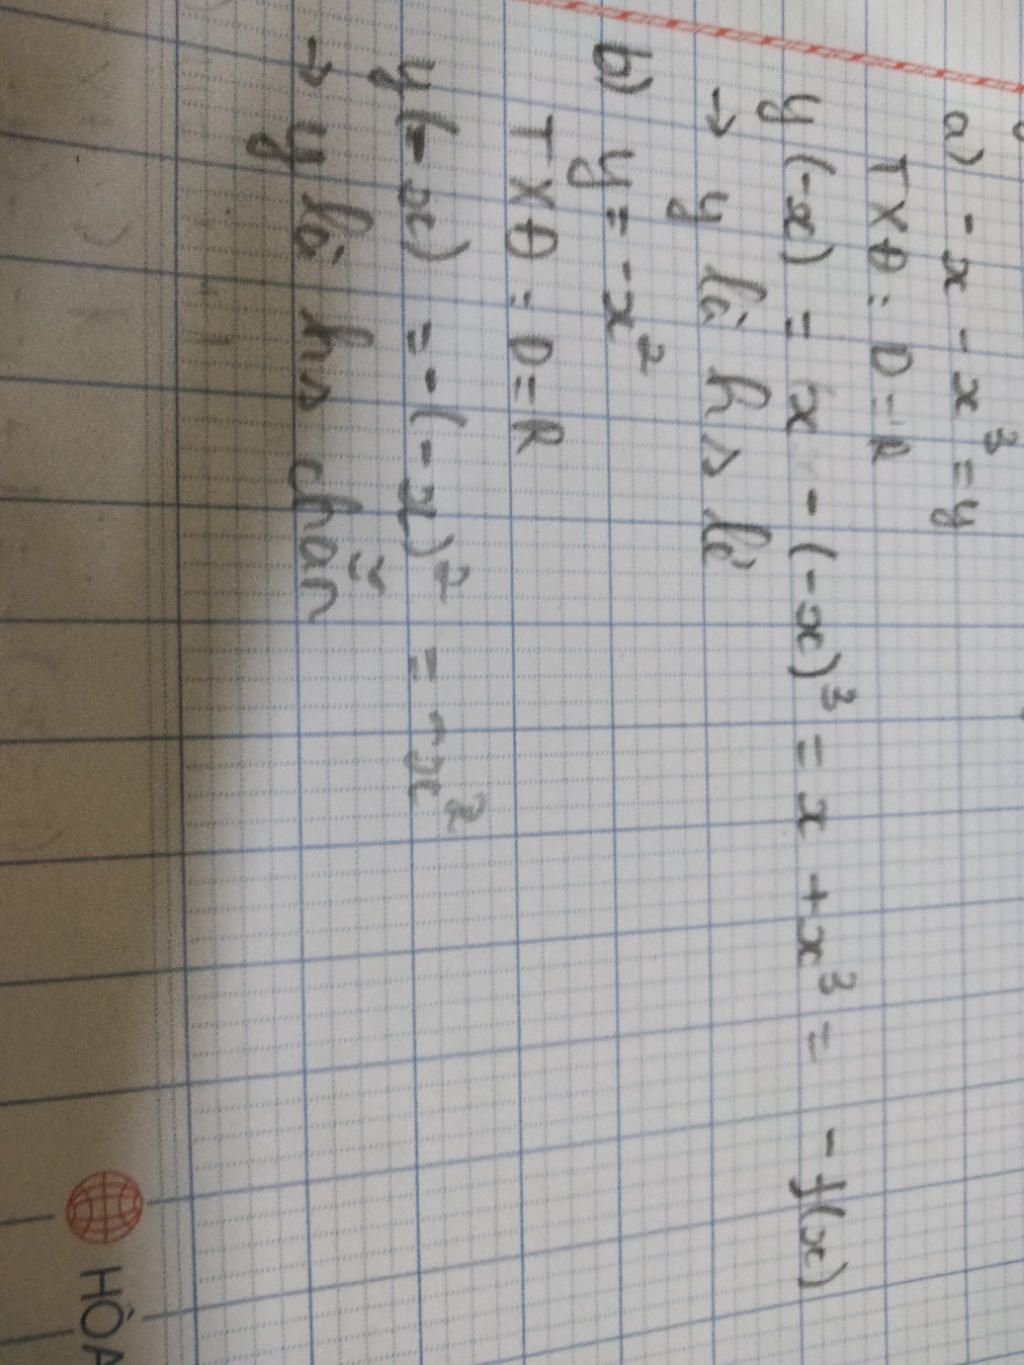 a) -x - x³ = y
TXĐ: D = R
y(-x) = x - (-x)³ = x + x³ = -f(x)
→ y là hs lẻ
b) y = -x²
TXĐ: D = R
y(-x) = -(-x)² = -x²
→ y là hs chẵn
HÒA